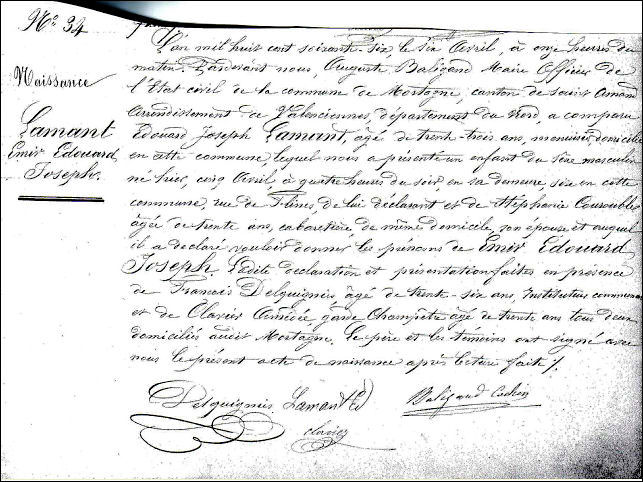 N° 34
Naissance
Lamant
Emir Edouard
Joseph.
L'an mil huit cent soixante-six le six Avril, à onze heures du
matin. Pardevant nous, Auguste Baligand Maire Officier de
l'Etat civil de la commune de Mortagne, canton de Saint Amand
Arrondissement de Valenciennes, département du Nord, a comparu
Edouard Joseph Lamant, âgé de trente-trois ans, menuisier domicilié
en cette commune, lequel nous a présenté un enfant du sexe masculin
né hier, cinq Avril, à quatre heures du soir, en sa demeure, sise en cette
commune, rue de Flines, de lui déclarant et de Stéphanie
âgée de trente ans, cabaretière, de même domicile, son épouse et auquel
il a déclaré vouloir donner les prénoms de Emir Edouard
Joseph. Ladite déclaration et présentation faites en présence
de François Delquignis âgé de trente-six ans, Instituteur communal
et de Amédée garde Champêtre âgé de trente ans tous deux
domiciliés audit Mortagne. Le père et les témoins ont signé avec
nous le présent acte de naissance après lecture faite.
Delquignis Lamant Ed Baligand